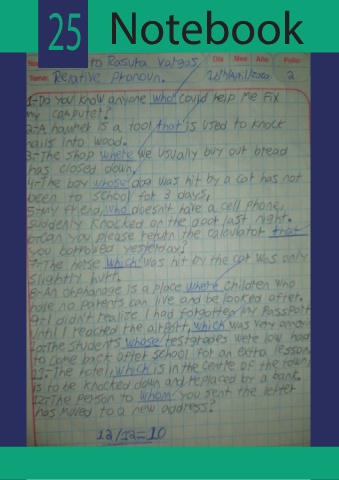 25 Notebook
to Rasura Vargas
Día Mes Año Folio
Tema: Relative Pronoun. 2
1-Do you know anyone who could help me fix
my computer?
2-A hammer is a tool that is used to knock
nails into wood.
3-The shop where we usually buy our bread
has closed down.
4-The boy whose dog was hit by a car has not
been to school for 3 days,
5-My friend, who doesn't have a cell phone,
suddenly knocked on the door last night.
6-Can you please return the calculator that
you borrowed yesterday?
7-The horse which was hit by the car was only
slightly hurt.
8-An orphanage is a place where children who
have no parents can live and be looked after.
9-I didn't realize I had forgotten my Passport
until I reached the airport, which was very
10-The students whose testgrades were low had
to come back after school for an extra lesson,
11-The hotel, which is in the centre of the town
is to be knocked down and replaced by a bank.
12-The person to whom you sent the letter
has moved to a new address?
12/12=10